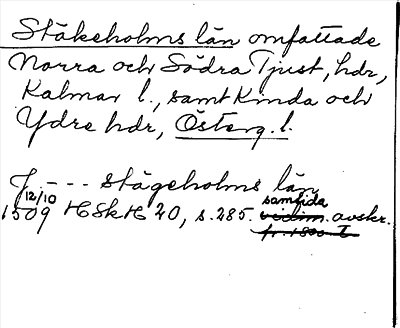 Stäkeholms län omfattade
Norra och Södra Tjust, hdr,
Kalmar l., samt Kinda och
Ydre hdr, Österg. l.
J. - - - stägeholms län
12/10
1509 HSkH 20, s. 285. samtida vidim. avskr.
fr. 1500 t